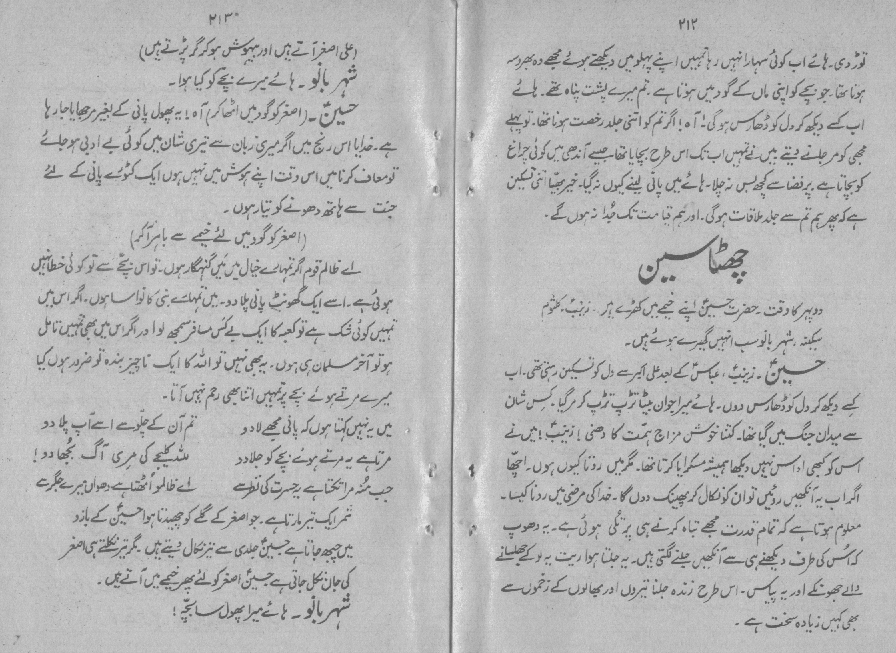 ۲۱۲
توڑ دی۔ ہائے اب کوئی سہارا نہیں رہا تمہیں اپنے پہلو میں دیکھتے ہوئے مجھے وہ بھروسہ
ہوتا تھا۔ جو بچے کو اپنی ماں کے گود میں ہوتا ہے۔ تم میرے پشت پناہ تھے۔ ہائے
اب کسے دیکھ کر دل کو ڈھارس ہوگی! آہ! اگر تم کو اتنی جلد رخصت ہونا تھا۔ تو پہلے
مجھی کو مر جانے دیتے میں نے تمہیں اب تک اس طرح بچایا تھا جیسے آندھی میں کوئی چراغ
کو بچاتا ہے پر قضا سے کچھ بس نہ چلا۔ ہائے میں پانی لینے کیوں نہ گیا۔ خیر بھیا اتنی تسکین
ہے کہ پھر ہم تم سے جلد ملاقات ہوگی۔ اور ہم قیامت تک جُدا نہ ہوں گے۔
چھٹا سین
دوپہر کا وقت۔ حضرت حسینؑ اپنے خیمے میں کھڑے ہیں۔ زینبؑ، کلثوم
سکینہ، شہر بانو سب انہیں گھیرے ہوئے ہیں۔
حسینؑ۔ زینبؑ، عباسؑ کے بعد علی اکبر سے دل کو تسکین رہتی تھی۔ اب
کسے دیکھ کر دل کو ڈھارس دوں۔ ہائے میرا جوان بیٹا تڑپ تڑپ کر مر گیا۔ کس شان
سے میدان جنگ میں گیا تھا۔ کتنا خوش مزاج ہمت کا دھنی! زینبؑ! میں نے
اس کو کبھی اداس نہیں دیکھا ہمیشہ مسکرایا کرتا تھا۔ مگر میں روتا کیوں ہوں۔ اچھّا
اگر اب یہ آنکھیں روئیں تو ان کو نکال کر پھینک دوں گا۔ خدا کی مرضی میں رونا کیسا۔
معلوم ہوتا ہے کہ تمام قدرت مجھے تباہ کرنے ہی پر تُلی ہوئی ہے۔ یہ دھوپ
کہ اُس کی طرف دیکھنے ہی سے آنکھیں جلنے لگتی ہیں۔ یہ جلتا ہوا ریت یہ لو کے جھلسانے
والے جھونکے اور یہ پیاس۔ اس طرح زندہ جلنا تیروں اور بھالوں کے زخموں سے
بھی کہیں زیادہ سخت ہے۔
۲۱۳
(علی اصغر آتے ہیں اور بیہوش ہو کر گر پڑتے ہیں)
شہر بانو۔ ہائے میرے بچے کو کیا ہوا۔
حسینؑ۔ (اصغر کو گود میں اٹھا کر) آہ! یہ پھول پانی کے بغیر مرجھایا جا رہا
ہے۔ خدایا اس رنج میں اگر میری زبان سے تیری شان میں کوئی بے ادبی ہو جائے
تو معاف کرنا میں اس وقت اپنے ہوش میں نہیں ہوں ایک کٹورے پانی کے لئے
جنت سے ہاتھ دھونے کو تیار ہوں۔
(اصغر کو گود میں لئے خیمے سے باہر آ کر)
اے ظالم قوم اگر تمہارے خیال میں مَیں گنہگار ہوں۔ تو اس بچّے سے تو کوئی خطا نہیں
ہوئی ہے۔ اسے ایک گھونٹ پانی پلا دو۔ میں تمہارے نبی کا نواسا ہوں۔ اگر اس میں
تمہیں کوئی شک ہے تو کعبہ کا ایک بے کس مسافر سمجھ لو اور اگر اس میں بھی تمہیں تامل
ہو تو آخر مسلمان ہی ہوں۔ یہ بھی نہیں تو اللہ کا ایک ناچیز بندہ تو ضرور ہوں کیا
میرے مرتے ہوئے بچے پر تمہیں اتنا بھی رحم نہیں آتا۔
میں یہ نہیں کہتا ہوں کہ پانی مجھے لا دو تم آن کے چلّو سے اسے آپ پلا دو
مرتا ہے یہ مرتے ہوئے بچے کو جلا دو للہ کلیجے کی مری آگ بُجھا دو!
جب مُنہ مرا تکتا ہے یہ حسرت کی نظر سے اے ظالمو اُٹھتا ہے دھواں میرے جگر سے
شمر ایک تیر مارتا ہے۔ جو اصغر کے گلے کو چھیدتا ہوا حسینؑ کے بازو
میں چبھ جاتا ہے حسینؑ جلدی سے تیر نکال دیتے ہیں۔ مگر تیر نکلتے ہی اصغر
کی جان نکل جاتی ہے حسینؑ اصغر کو لئے پھر خیمے میں آتے ہیں۔
شہر بانو۔ ہائے میرا پھول سا بچّہ!